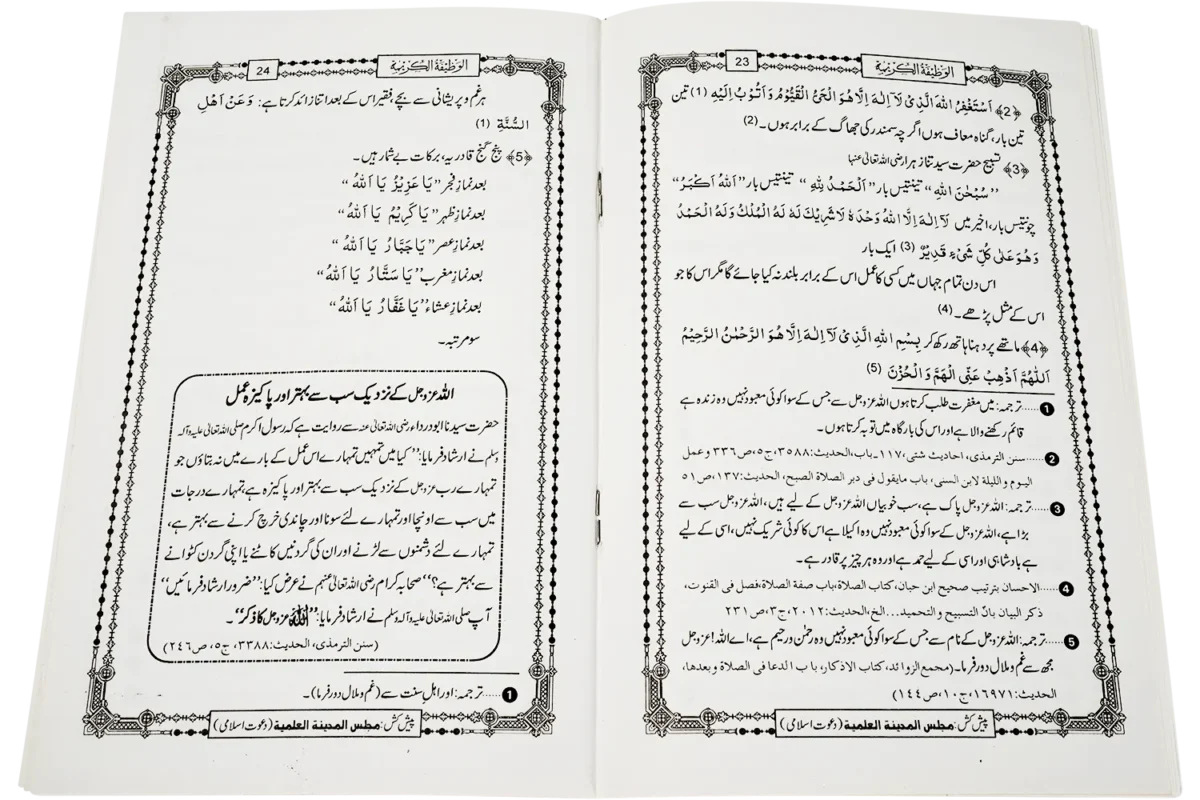 23
الوظیفۃ الکریمۃ
﴿2﴾ اَسْتَغْفِرُ اللهَ الَّذِیْ لَآ اِلٰـهَ اِلَّا هُوَ الْحَیُّ الْقَیُّوْمُ وَاَتُوْبُ اِلَیْهِ (1) تین
تین بار، گناہ معاف ہوں اگرچہ سمندر کی جھاگ کے برابر ہوں۔(2)
﴿3﴾ تسبیح حضرت سیدتنا زہرا رضی اللہ تعالیٰ عنہا
”سُبْحٰنَ اللهِ“ تینتیس بار ”اَلْحَمْدُ لِلّٰهِ“ تینتیس بار ”اَللهُ اَكْبَرُ“
چونتیس بار، اخیر میں لَآ اِلٰـهَ اِلَّا اللهُ وَحْدَهٗ لَا شَرِیْكَ لَهٗ لَهُ الْمُلْكُ وَلَهُ الْحَمْدُ
وَهُوَ عَلٰی كُلِّ شَیْءٍ قَدِیْرٌ (3) ایک بار
اس دن تمام جہاں میں کسی کا عمل اس کے برابر بلند نہ کیا جائے گا مگر اس کا جو
اس کے مثل پڑھے۔(4)
﴿4﴾ ماتھے پر دہنا ہاتھ رکھ کر بِسْمِ اللهِ الَّذِیْ لَآ اِلٰـهَ اِلَّا هُوَ الرَّحْمٰنُ الرَّحِیْمُ
اَللّٰهُمَّ اَذْهِبْ عَنِّی الْهَمَّ وَ الْحُزْنَ (5)
1 .....ترجمہ: میں مغفرت طلب کرتا ہوں اللہ عزوجل سے جس کے سوا کوئی معبود نہیں وہ زندہ ہے
قائم رکھنے والا ہے اور اس کی بارگاہ میں توبہ کرتا ہوں۔
2 .....سنن الترمذی، احادیث شتی، ۱۱۷۔باب، الحدیث: ۳۵۸۸، ج۵، ص۳۳۶ و عمل
الیوم واللیلۃ لابن السنی، باب مایقول فی دبر الصلاۃ الصبح، الحدیث: ۱۳۷، ص۵۱
3 .....ترجمہ: اللہ عزوجل پاک ہے، سب خوبیاں اللہ عزوجل کے لیے ہیں، اللہ عزوجل سب سے
بڑا ہے، اللہ عزوجل کے سوا کوئی معبود نہیں وہ اکیلا ہے اس کا کوئی شریک نہیں، اسی کے لیے
ہے بادشاہی اور اسی کے لیے حمد ہے اور وہ ہر چیز پر قادر ہے۔
4 .....الاحسان بترتیب صحیح ابن حبان، کتاب الصلاۃ، باب صفۃ الصلاۃ، فصل فی القنوت،
ذکر البیان بانّ التسبیح و التحمید... الخ، الحدیث: ۲۰۱۲، ج۳، ص۲۳۱
5 .....ترجمہ: اللہ عزوجل کے نام سے جس کے سوا کوئی معبود نہیں وہ رحمٰن و رحیم ہے، اے اللہ! عزوجل
مجھ سے غم و ملال دور فرما۔ (مجمع الزوائد، کتاب الاذکار، باب الدعا فی الصلاۃ و بعدھا،
الحدیث: ۱۶۹۷۱، ج۱۰، ص۱۴۴)
پیش کش: مجلس المدینۃ العلمیۃ (دعوت اسلامی)
24
الوظیفۃ الکریمۃ
ہر غم و پریشانی سے بچے فقیر اس کے بعد اتنا زائد کرتا ہے: وَ عَنْ اَهْلِ
السُّنَّةِ (1)
﴿5﴾ پنج گنج قادریہ، برکات بے شمار ہیں۔
بعد نمازِ فجر ”یَا عَزِیْزُ یَا اَللهُ“
بعد نمازِ ظہر ”یَا كَرِیْمُ یَا اَللهُ“
بعد نمازِ عصر ”یَا جَبَّارُ یَا اَللهُ“
بعد نمازِ مغرب ”یَا سَتَّارُ یَا اَللهُ“
بعد نمازِ عشاء ”یَا غَفَّارُ یَا اَللهُ“
سو مرتبہ۔
اللہ عزوجل کے نزدیک سب سے بہتر اور پاکیزہ عمل
حضرت سیدنا ابودرداء رضی اللہ تعالیٰ عنہ سے روایت ہے کہ رسول اکرم صلی اللہ تعالیٰ علیہ وآلہ
وسلم نے ارشاد فرمایا: ”کیا میں تمہیں تمہارے اس عمل کے بارے میں نہ بتاؤں جو
تمہارے رب عزوجل کے نزدیک سب سے بہتر اور پاکیزہ ہے، تمہارے درجات
میں سب سے اونچا اور تمہارے لئے سونا اور چاندی خرچ کرنے سے بہتر ہے،
تمہارے لئے دشمنوں سے لڑنے اور ان کی گردنیں کاٹنے یا اپنی گردن کٹوانے
سے بہتر ہے؟“ صحابہ کرام رضی اللہ تعالیٰ عنہم نے عرض کیا: ”ضرور ارشاد فرمائیں“
آپ صلی اللہ تعالیٰ علیہ وآلہ وسلم نے ارشاد فرمایا: ”اللہ عزوجل کا ذکر“۔
(سنن الترمذی، الحدیث: ۳۳۸۸، ج۵، ص۲۴۶)
1 .....ترجمہ: اور اہلِ سنت سے (غم و ملال دور فرما)۔
پیش کش: مجلس المدینۃ العلمیۃ (دعوت اسلامی)